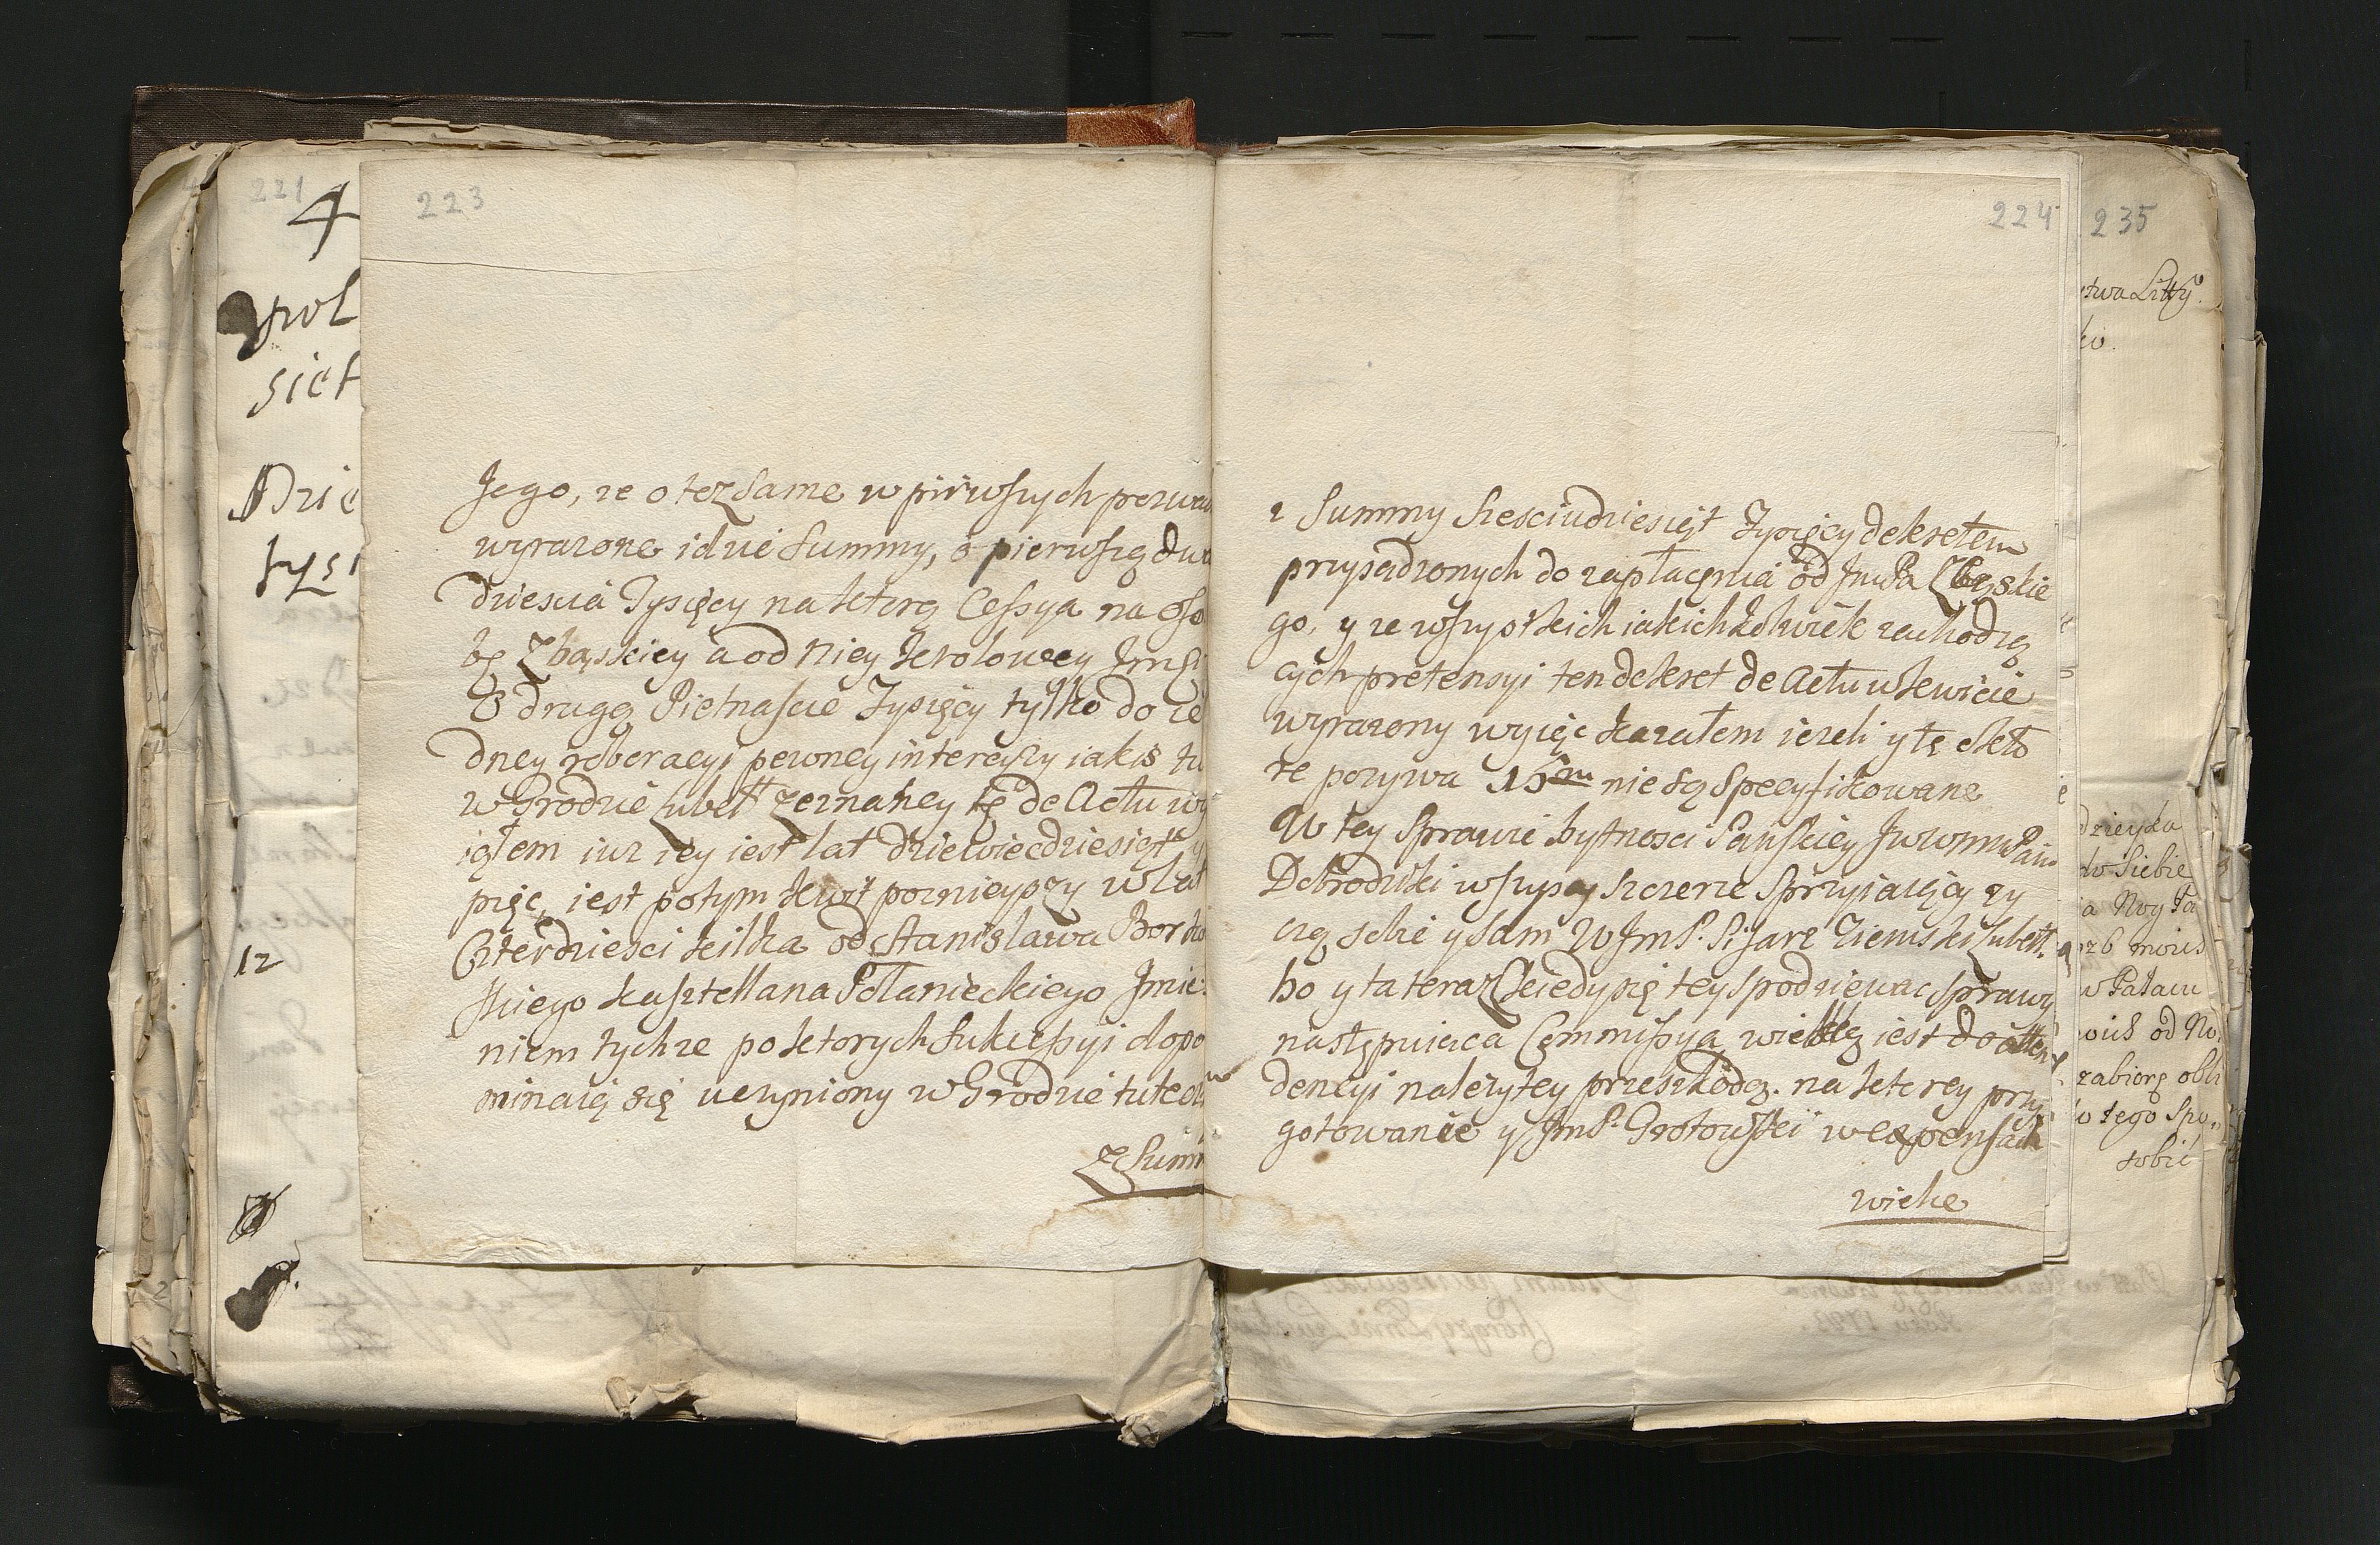 221
4
pol
siet
Dzie
tysi
12
223
Jego, ze o tez same w pirwszych pozwa
wyrazone idzie summy, o pierwszą dwa
dziescia Tysięcy na ktorą Cessya na oso
bę Zbąskiey a od niey Krolowey Jmsi
O drugą Pietnascie Tysięcy tylko do ie
dney roboracyi pewney intercyzy iakis tu
w Grodzie Lubell zeznaney tę de Actu wy
iąłem iuz iey iest lat dziewiecdziesiąt y
pięc, iest potym kwit poznieyszy w lat
Czterdziesci kilka od Stanislawa Borko
skiego kasztellana Połanieckiego Jmie
niem tychze po ktorych Sukcessyi dopo
minaią się uczyniony w Grodzie tutecz
Z Summ
224
z Summy Szesciudziesiąt Tysięcy dekretem
przysądzonych do zapłacęnia od JmPa Zbąskie
go, y ze wszystkich iakichkolwiek zachodzą
cych pretensyi ten dekret de Actu w kwicie
wyrazony wyiąc kazałem iezeli y tę o kto
re pozywa 15m nie są specyfikowane
W tey sprawie bytnosci Pańskiey Jwwmm Pan
Dobrodziki wszyscy szczerze sprzyiaiący zy
czą sobie y sam WJmP. Pisarz Ziemski Lubell.
bo y ta teraz kiedy się tey spodziewac sprawy
następuiąca Commissya wielką iest do atten
dencyi nalezytey przeszkodą. na ktorey przy
gotowanie y JmP. Grotowski w expensach
wielke
235
stwa Litty.
ko.
dzieyka
do Siebie
ia Noy Pa
zb mois
w Pałacu
ois od No
zabiorę obli
o tego Spo
sobie